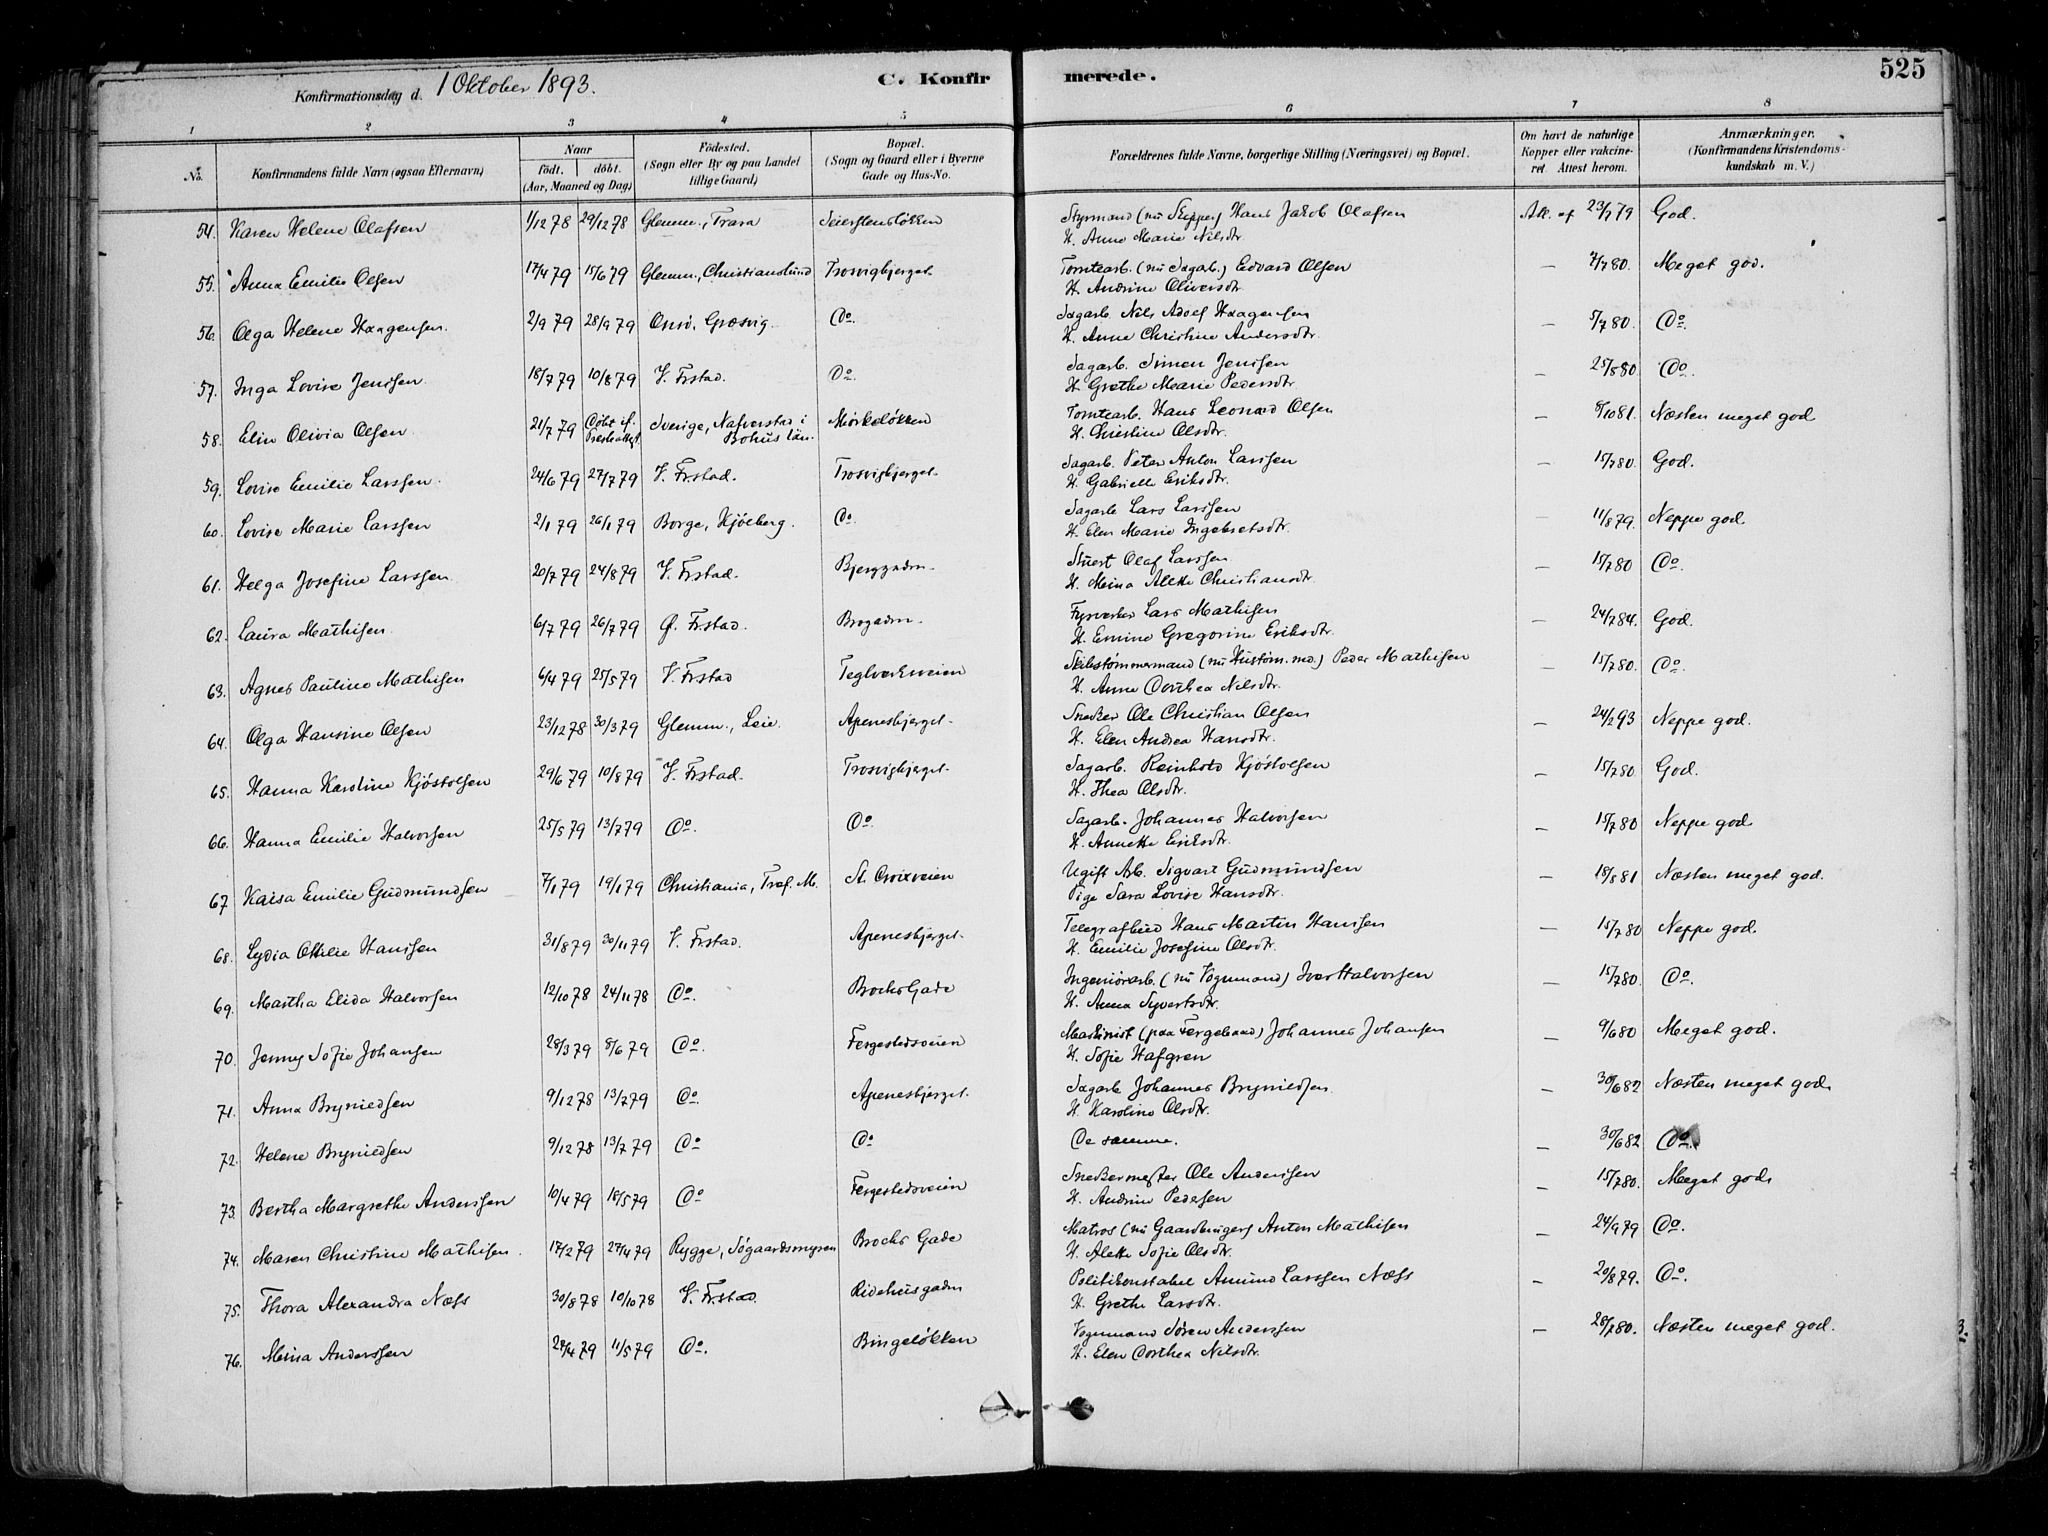 Konfirmationsdag d. 1 Oktober 1893. C. Konfirmerede. 525
1 2 3 4 5 6 7 8
No. Konfirmandens fulde Navn (ogsaa Efternavn) Naar födt. döbt. (Aar, Maaned og Dag) Födested. (Sogn eller By og paa Landet tillige Gaard) Bopæl. (Sogn og Gaard eller i Byerne Gade og Hus-No. Forældrenes fulde Navne, borgerlige Stilling (Næringsvei) og Bopæl. Om havt de naturlige Kopper eller vakcineret. Attest herom. Anmærkninger. (Konfirmandens Kristendomskundskab m. V.)
54. Karen Helene Olafsen 1/12 78 29/12 78 Glemm., Trara Seierstensløkken Styrmand (nu Skipper) Hans Jakob Olafsen Att. af 23/7 79 God.
H. Anne Marie Nilsdtr.
55. Anna Emilie Olsen 17/4 79 15/6 79 Glemm., Christianslund Trosvigbjerget. Tomtearb. (nu Sagarb.) Edvard Olsen — 7/7 80. Meget god.
H. Andrine Oliversdtr.
56. Olga Helene Haagensen. 2/9 79 28/9 79 Onsö, Græsvig. Do. Sagarb. Nils Adolf Haagensen — 5/7 80. Do.
H. Anne Christine Andersdtr.
57. Inga Lovise Jenssen. 18/7 79 10/8 79 V. Frstad. Do. Sagarb. Simen Jenssen — 25/8 80 Do.
H. Grethe Marie Pedersdtr.
58. Elin Olivia Olsen. 21/7 79 Döbt if. Sverige, Nafverstad i Bohus län. Mörkeløkken Tomtearb. Hans Leonard Olsen — 8/10 81. Næsten meget god
H. Christine Olsdtr.
59. Lovise Emilie Larssen. 24/6 79 27/7 79 V. Frstad. Trosvigbjerget. Sagarb. Peter Anton Larssen — 15/7 80. God.
H. Gabrielle Eriksdtr.
60. Lovise Marie Larssen 2/1 79 26/1 79 Borge, Kjölberg. Do. Sagarb. Lars Larssen — 11/8 79. Neppe god.
H. Elen Marie Ingebretsdtr.
61. Helga Josefine Larssen. 20/7 79 24/8 79 V. Frstad. Bjerggaden. Stuert Olaf Larssen — 15/7 80 Do.
H. Meina Alette Christiansdtr.
62. Laura Mathisen. 6/7 79 26/7 79 Ø. Frstad. Brogaden. Fyrverker Lars Mathisen — 24/7 84. God.
H. Emine Gregorine Eriksdtr.
63. Agnes Pauline Mathisen 6/4 79 25/5 79 V. Frstad Teglverksveien Skibstömmermand (nu Hustöm.md.) Peder Mathisen — 15/7 80. Do.
H. Anne Dorthea Nilsdtr.
64. Olga Hansine Olsen 23/12 78 30/3 79 Glemm., Leie. Apenesbjerget. Snedker Ole Christian Olsen — 24/2 93 Neppe god.
H. Elen Andrea Hansdtr.
65. Hanna Karoline Kjöstolsen 29/6 79 10/8 79 V. Frstad. Trosvigbjerget. Sagarb. Reinhold Kjöstolsen — 15/7 80 God.
H. Thea Olsdtr.
66. Hanna Emilie Halvorsen 25/5 79 13/7 79 Do. Do. Sagarb. Johannes Halvorsen — 15/7 80 Neppe god
H. Annette Eriksdtr.
67 Kaisa Emilie Gudmundsen 7/1 79 19/1 79 Christiania, Tref. M. St. Croixveien Ugift Arb. Sigvart Gudmundsen — 18/8 81 Næsten meget god.
Pige Sara Lovise Hansdtr.
68. Lydia Ottilie Hanssen 31/8 79 30/11 79 V. Frstad. Apenesbjerget. Telegrafbud Hans Martin Hanssen — 15/7 80 Neppe god.
H. Emilie Josefine Olsdtr.
69. Martha Elida Halvorsen 12/10 78 24/11 78 Do. Brochs Gade Ingeniörarb. (nu Vognmand) Iver Halvorsen — 15/7 80. Do.
H. Anna Syvertsdtr.
70. Jenny Sofie Johansen 28/3 79 8/6 79 Do. Fergestedsveien Maskinist (paa Fergebaad) Johannes Johansen — 9/6 80 Meget god.
H. Sofie Hafgren
71. Anna Bryniedsen 9/12 78 13/7 79 Do. Apenesbjerget. Sagarb. Johannes Bryniedsen — 30/6 82 Næsten meget god.
H. Karoline Olsdtr.
72. Helene Bryniedsen 9/12 78 13/7 79 Do Do De samme. — 30/6 82 Do.
73. Bertha Margrethe Anderssen 10/4 79 18/5 79 Do Fergestedsveien Snedkermester Ole Anderssen — 15/7 80. Meget god.
H. Andrine Pedersen
74. Maren Christine Mathisen. 17/2 79 27/4 79 Rygge, Sögaardsmyren Brochs Gade Matros (nu Gaardbruger) Anton Mathisen — 24/9 79 Do.
H. Alette Sofie Olsdtr.
75. Thora Alexandra Næss 30/8 78 10/10 78 V. Frstad Ridehusgaden Politikonstabel Amund Larssen Næss — 20/8 79. Do.
H. Grethe Larsdtr.
76. Meina Anderssen 28/4 79 11/5 79 Do. Bingeløkken Vognmand Sören Anderssen — 28/7 80. Næsten meget god.
H. Elen Dorthea Nilsdtr.